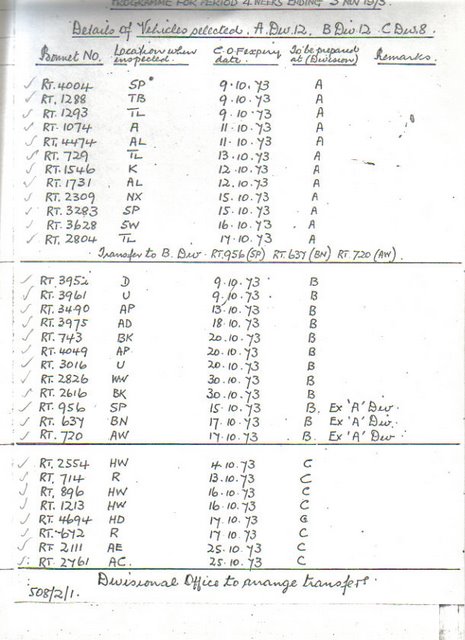 PROGRAMME FOR PERIOD 4 WEEKS ENDING 3 NOV 1973
Details of Vehicles selected. A.Div.12. B Div 12. C Div. 8.
Bonnet No. Location when inspected. C.O.F. expiry date. To be prepared at (Division) Remarks.
✓ RT. 4004 SP 9.10.73 A
✓ RT. 1288 TB 9.10.73 A
✓ RT. 1293 TL 9.10.73 A
✓ RT. 1074 A 11.10.73 A
✓ RT. 4474 AL 11.10.73 A
✓ RT. 729 TL 13.10.73 A
✓ RT. 1546 K 12.10.73 A
✓ RT. 1731 AL 12.10.73 A
✓ RT. 2309 NX 15.10.73 A
✓ RT. 3283 SP 15.10.73 A
✓ RT. 3628 SW 16.10.73 A
✓ RT. 2804 TL 17.10.73 A
Transfer to B. Div. RT.956 (SP) RT.637 (BN) RT 720 (AW)
✓ RT. 3952 D 9.10.73 B
✓ RT. 3961 U 9.10.73 B
✓ RT. 3490 AP 13.10.73 B
✓ RT. 3975 AD 18.10.73 B
✓ RT. 743 BK 20.10.73 B
✓ RT. 4049 AP 20.10.73 B
✓ RT. 3016 U 20.10.73 B
✓ RT. 2826 WW 30.10.73 B
✓ RT. 2616 BK 30.10.73 B
✓ RT. 956 SP 15.10.73 B. Ex 'A' Div.
✓ RT. 637 BN 17.10.73 B Ex 'A' Div.
✓ RT. 720 AW 17.10.73 B Ex 'A' Div
✓ RT. 2554 HW 4.10.73 C
✓ RT. 714 R 13.10.73 C
✓ RT. 896 HW 16.10.73 C
✓ RT. 1213 HW 16.10.73 C
✓ RT. 4694 HD 17.10.73 C
✓ RT. 672 R 17.10.73 C
✓ RT. 2111 AE 25.10.73 C
✓ RT. 2761 AC. 25.10.73 C
Divisional Office to arrange transfers.
508/2/1.